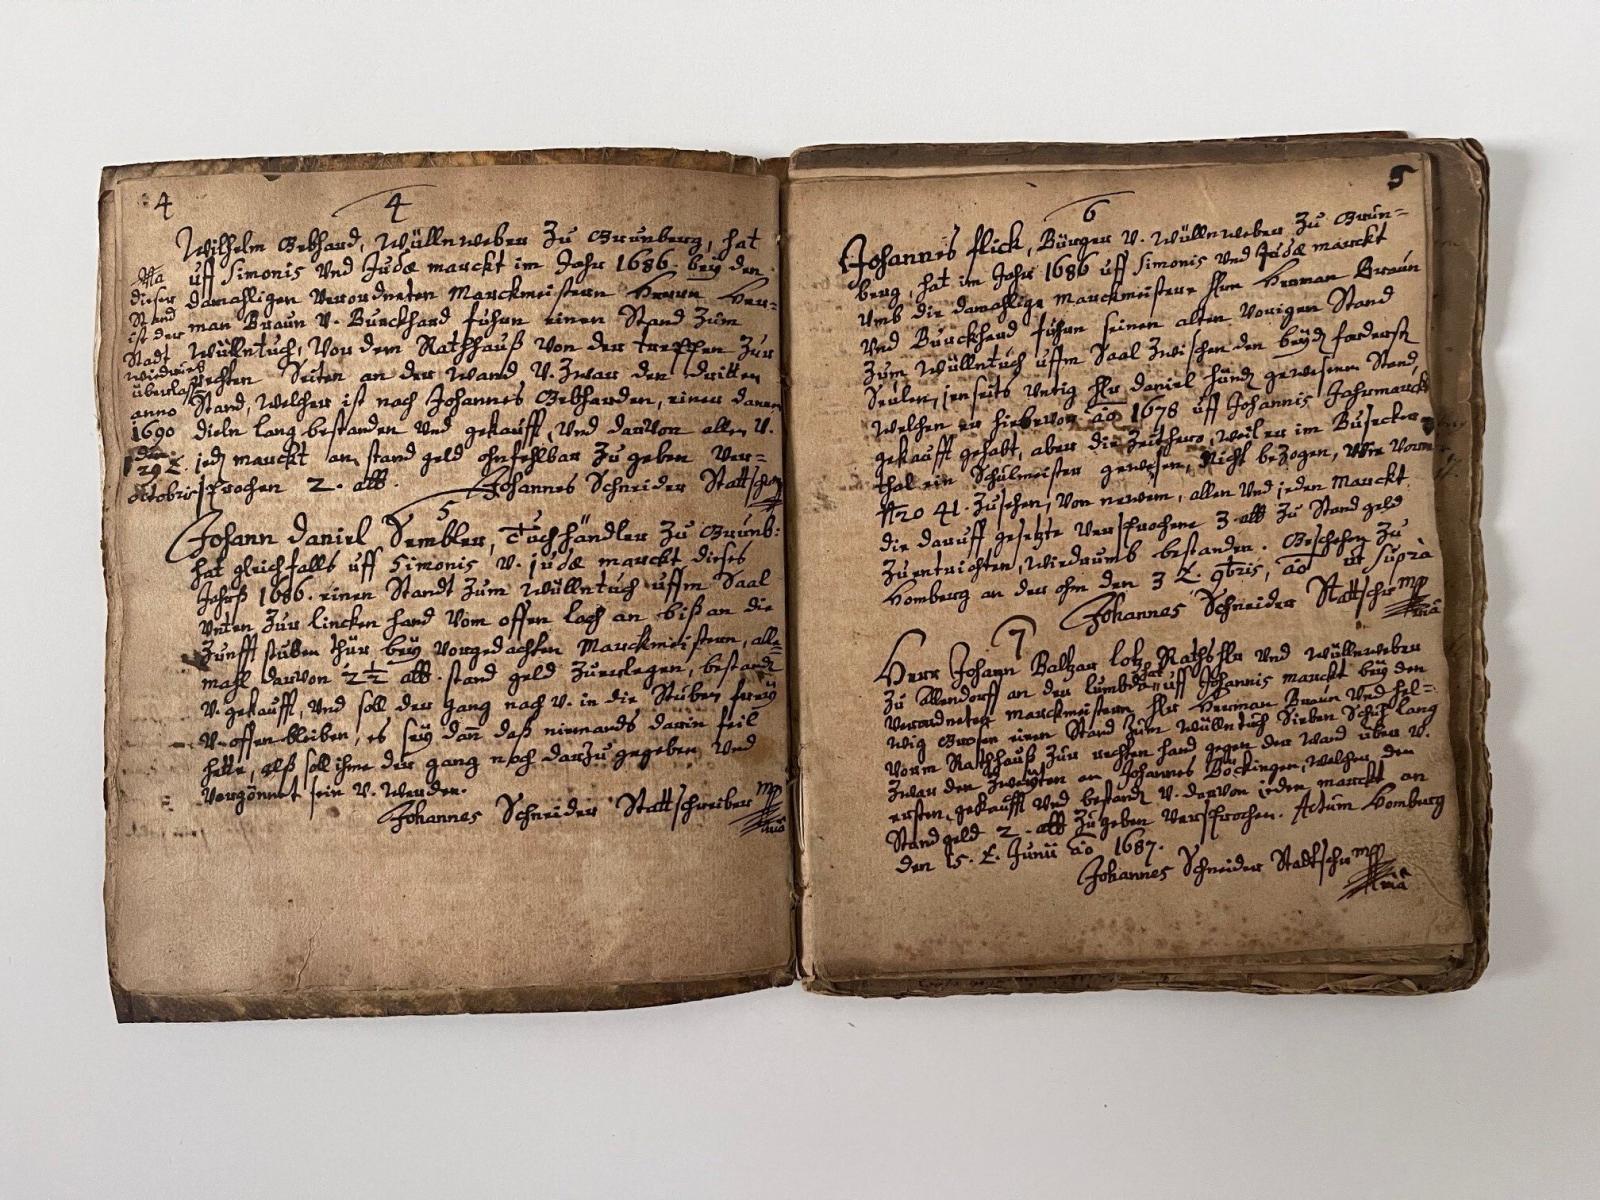 4
4
Wilhelm Gebhard, Wüllnweber Zu Grünberg, hat
uff Simonis Vnd Judæ marckt im Jahr 1686. beÿ den
damahligen Verordneten Marckmeistern Herrn Her=
man Braun V. Burckhard führn einen Stand Zum
Wüllntuch, Vor dem Rathhauß Von der treppen Zur
rechten Seiten an der Wand V. Zwar den dritten
Stand, Welcher ist nach Johannes Gebharden, einer
dieln lang bestanden Vnd gekaufft, Vnd darvon allen V.
jedn marckt an stand geld ohnfehlbar Zu geben Ver=
sprochen 2. alb.
Johannes Schneider Stattschr
dieser
Stand
ist der
Stadt
widrumb
überlaß
anno
1690
den
29
Octobris
5
Johann Daniel Sembler, Tuchhändler Zu Grünb:
hat gleichfalls uff Simonis V. judæ marckt dieses
Jahrß 1686. einen Standt Zum Wüllntuch uffm Saal
Vnten Zur lincken hand Vom offen loch an biß an die
Zunfft stuben thür beÿ Vorgedachten Marckmeistern, alle=
mahl darvon 2½ alb. stand geld Zuerlegen, bestandn
V. gekaufft, Vnd soll der gang nach V. in die Stuben freÿ
V. offen bleiben, es seÿ dan daß niemands darin feil
hette, alß soll ihme der gang noch darzu gegeben Vnd
Vergönnet sein V. Werden.
Johannes Schneider Stattschreiber mp
5
6
Johannes Flick, Bürger V. Wüllnweber Zu Grün=
berg, hat im Jahr 1686 uff Simonis Vnd Judæ marckt
Vmb die damahlige marckmeistere Hrn Herman Braun
Vnd Burckhard führn seinen alten Vorigen Stand
Zum Wüllntuch uffm Saal Zwischen den beÿdn fordersten
Seulen, jenseits Hr Daniel gewesenen Stand,
Welchen er hiebevor ao 1678 uff Johannis Jahrmarckt
gekaufft gehabt, aber die Zeithero, Weil er im Busecker
thal ein Schulmeister gewesen, Nicht bezogen, Wie Vorn
Nro 41. Zusehen, Von newem, allen Vnd jeden Marckt
die daruff gesetzte Versprochene 3 alb Zu Stand geld
Zuentrichten, Widrumb bestanden. Geschehen Zu
Homberg an der ohm den 3 t. 9bris, ao ut supra
Johannes Schneider Stattschr mp
7
Herr Johann Baltzar Lotz, Rathsfr Vnd Wüllnweber
Zu Allendorff an der Lumbda hat uff Johannis marckt beÿ den
Verordneten marckmeistern Hr Herman Braun Vnd Hel=
wig Grosen einen Stand Zum Wüllntuch Sieben Schuh lang
Vorm Rathhauß Zur rechten hand gegen der Wand über V.
Zwar den Zweÿten an Johannes Böckingen, Welcher den
ersten, gekaufft Vnd bestandn V. darvon jeden marckt an
Stand geld 2. alb Zu geben Versprochen. Actum Homberg
den 15. t. Junii ao 1687.
Johannes Schneider Stadtschr mp